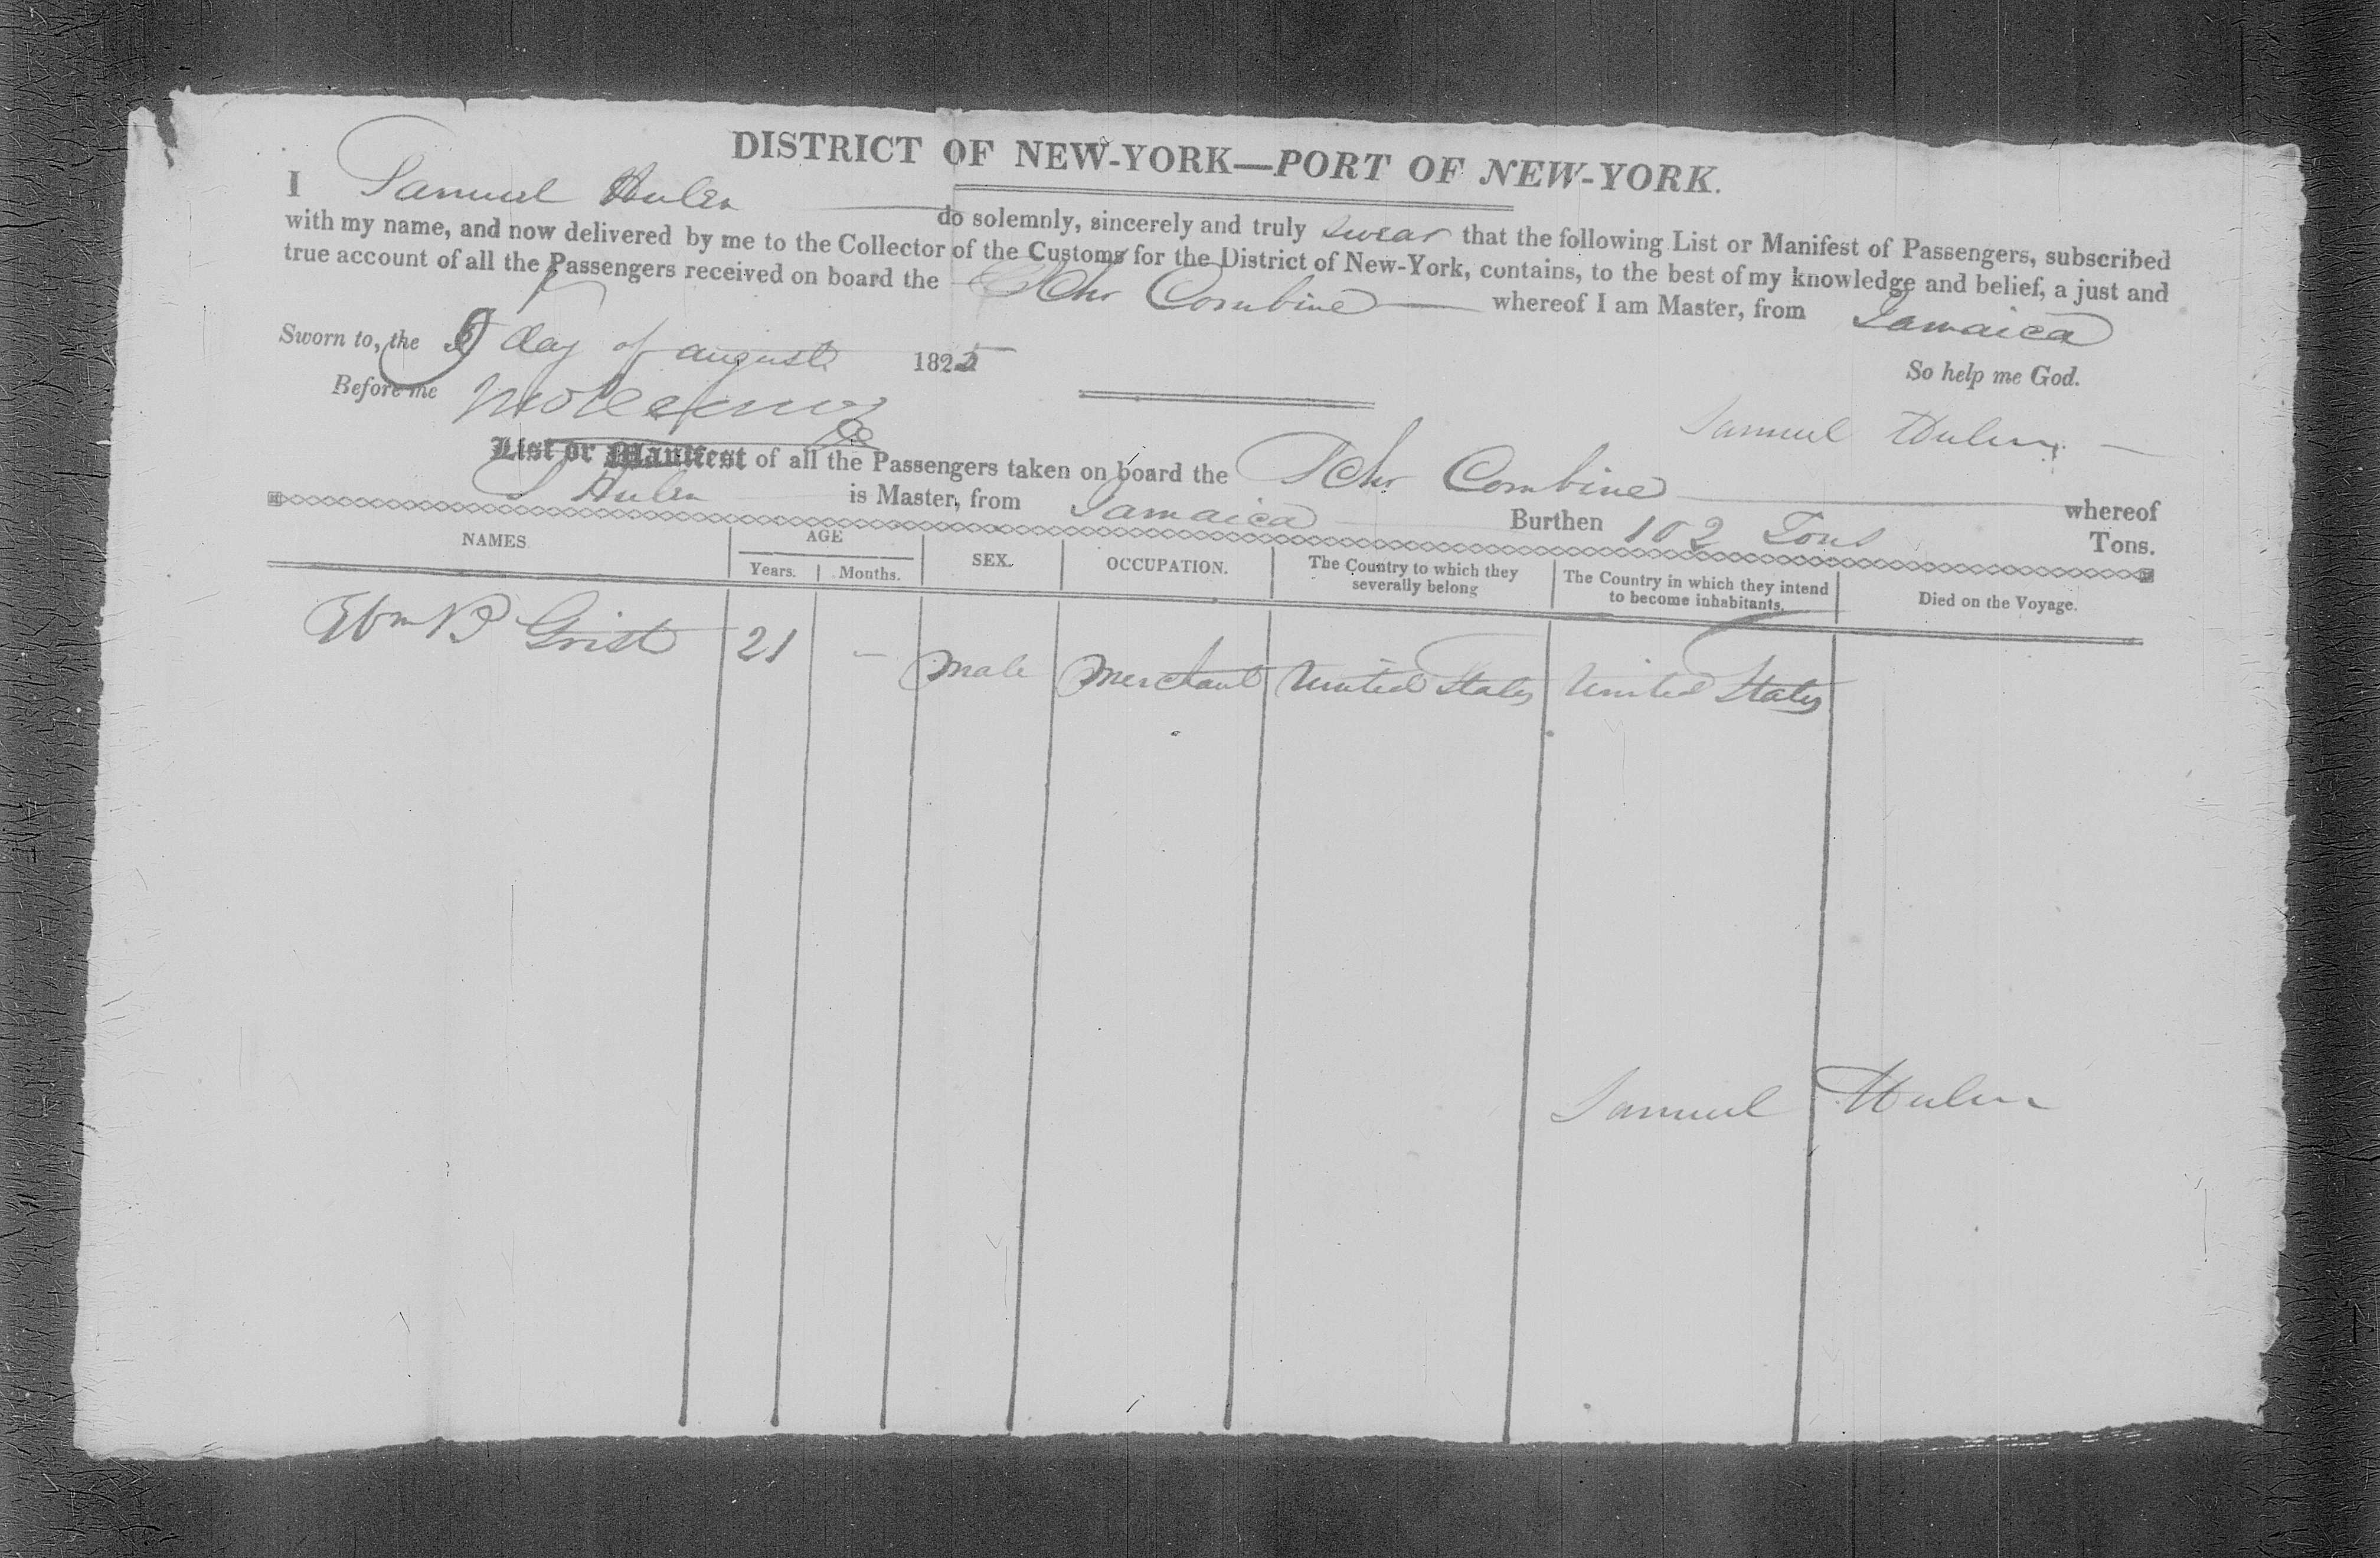 DISTRICT OF NEW-YORK—PORT OF NEW-YORK.
I Samuel Hulen do solemnly, sincerely and truly swear that the following List or Manifest of Passengers, subscribed
with my name, and now delivered by me to the Collector of the Customs for the District of New-York, contains, to the best of my knowledge and belief, a just and
true account of all the Passengers received on board the Schr Combine whereof I am Master, from Jamaica
Sworn to, the day of august 1825
So help me God.
Before me
Samuel Hulen
List or Manifest of all the Passengers taken on board the Schr Combine whereof
S Hulen is Master, from Jamaica Burthen 102 Tons Tons.
NAMES AGE SEX. OCCUPATION. The Country to which they severally belong The Country in which they intend to become inhabitants. Died on the Voyage.
Years. Months.
Ebn B Grist 21 — male Merchant United States United States
Samuel Hulen